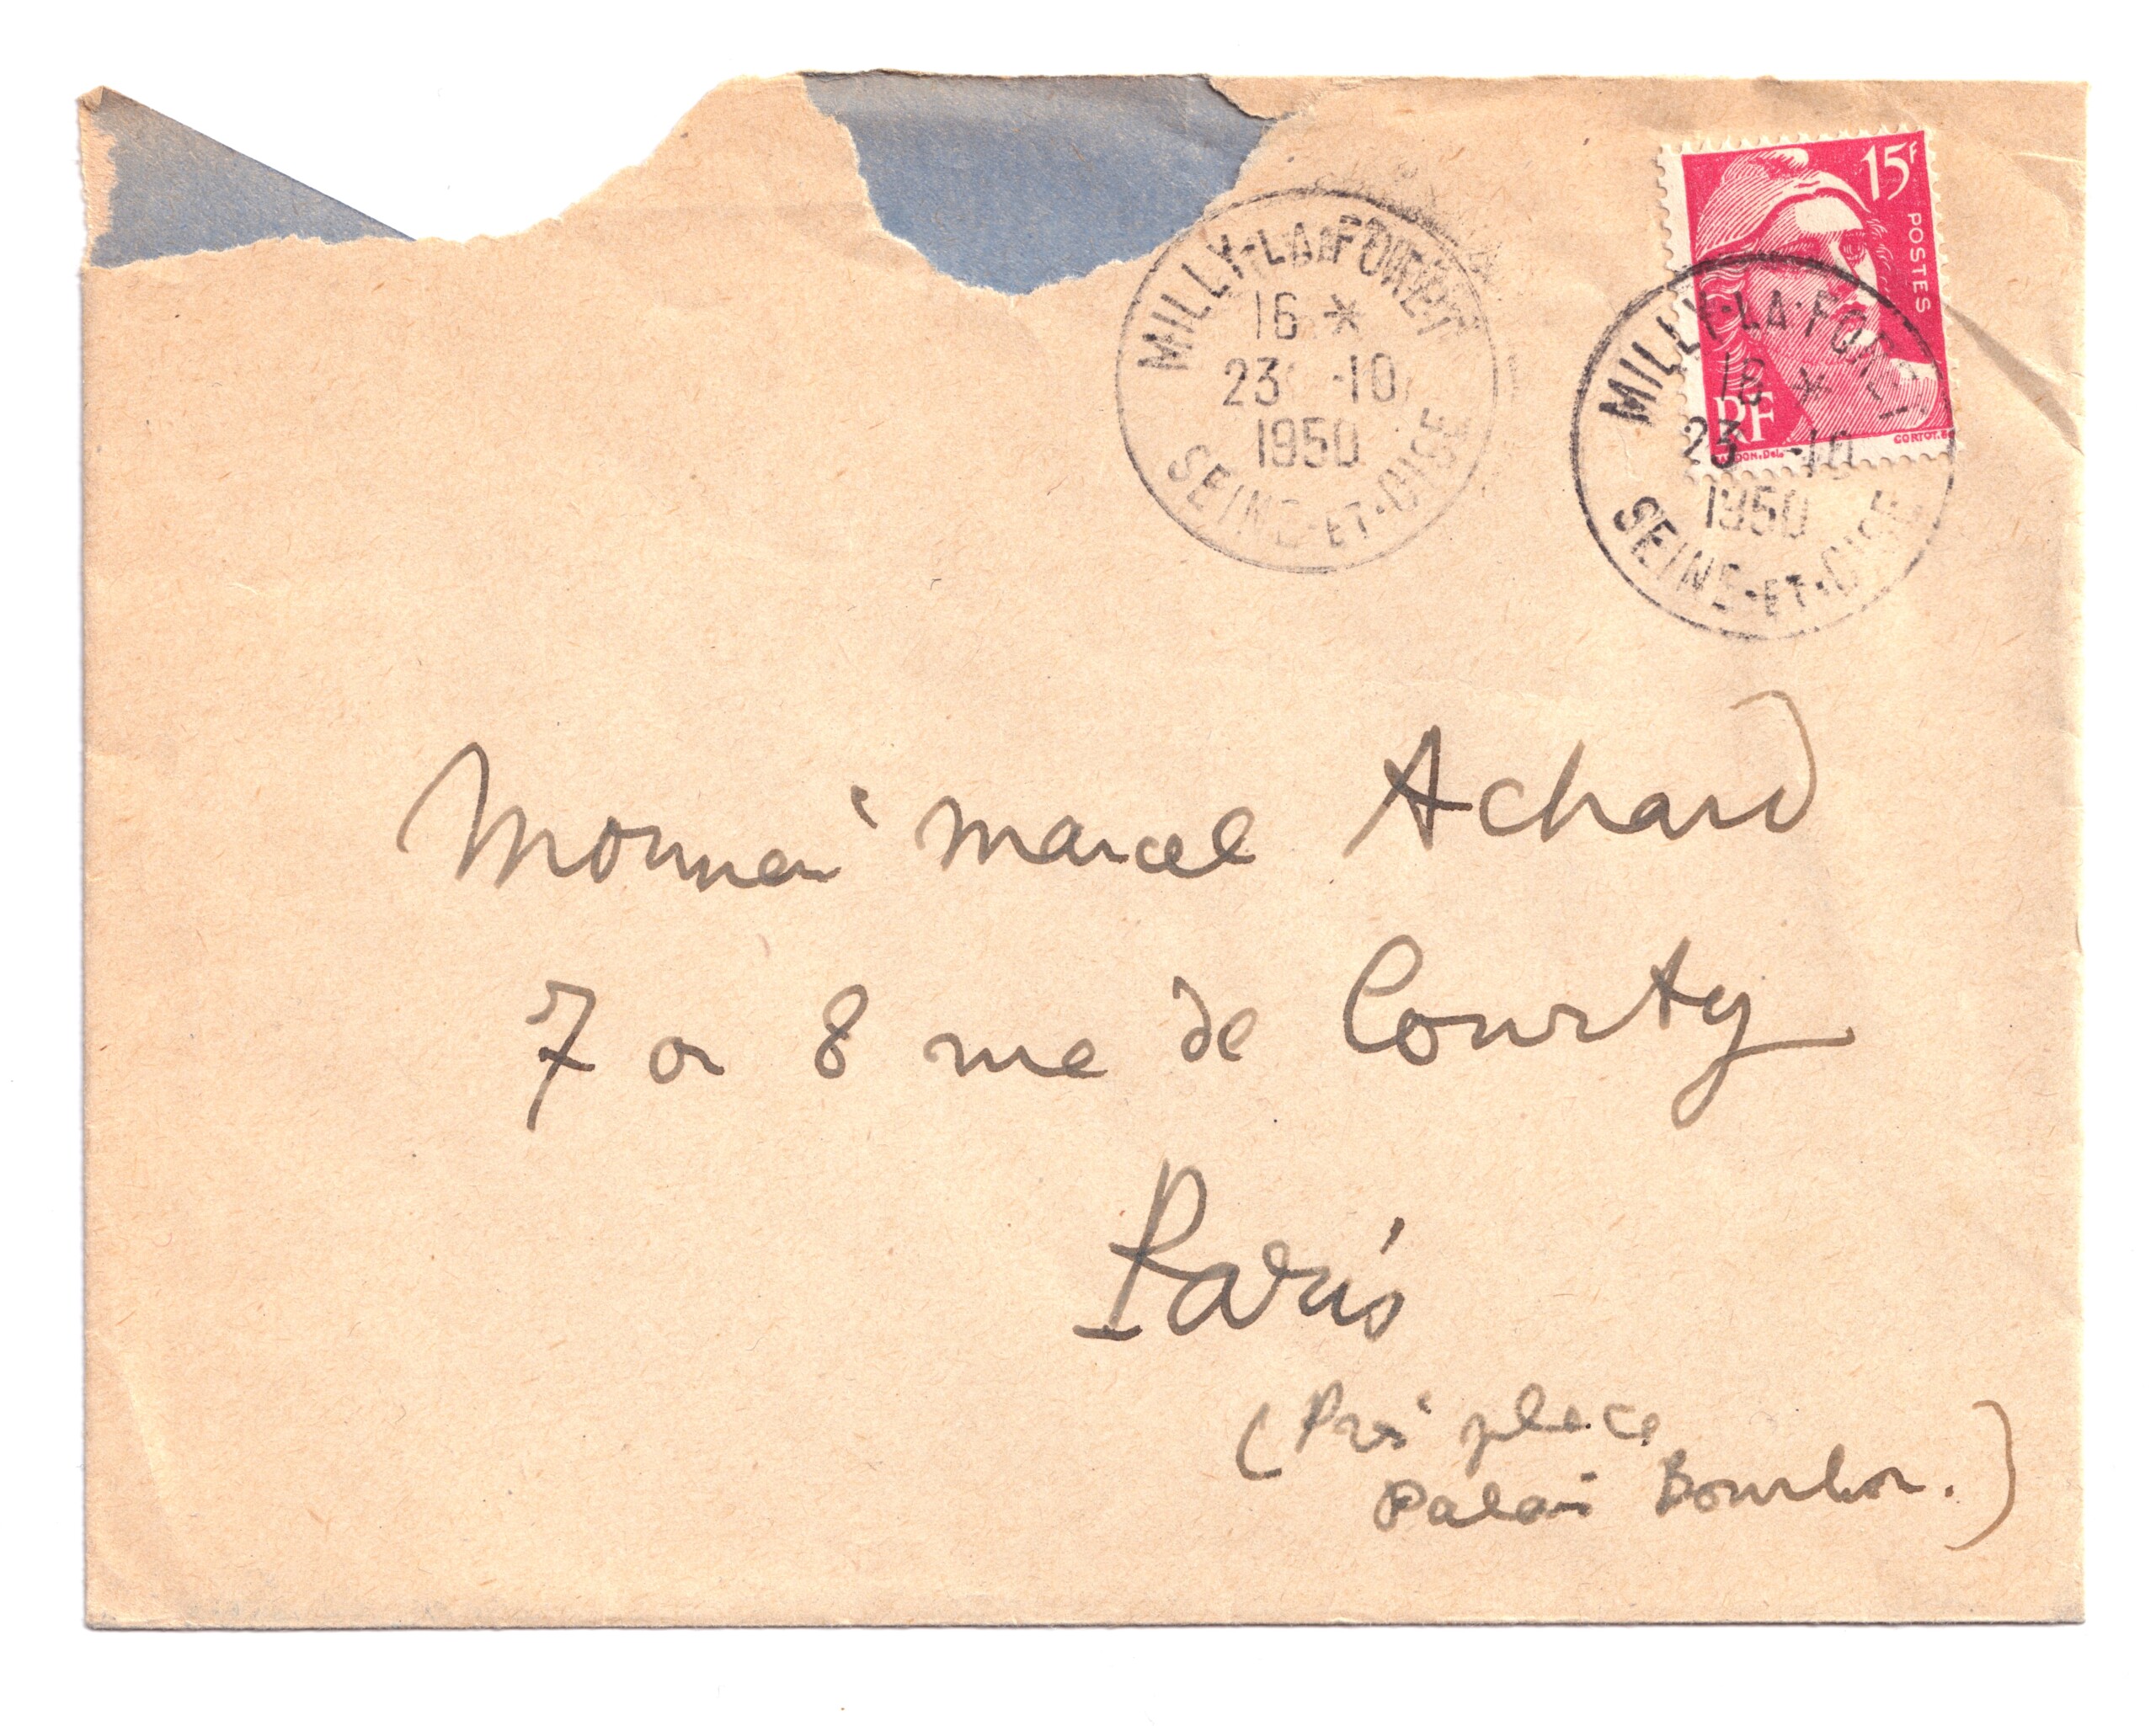 MILLY-LA-FORET
16 *
23 -10
1950
SEINE-ET-OISE
15F
POSTES
RF
GANDON.Del.
CORTOT.
MILLY-LA-FORET
16 *
23 -10
1950
SEINE-ET-OISE
Monsieur Marcel Achard
7 ou 8 rue de Courty
Paris
(Près place
Palais Bourbon.)